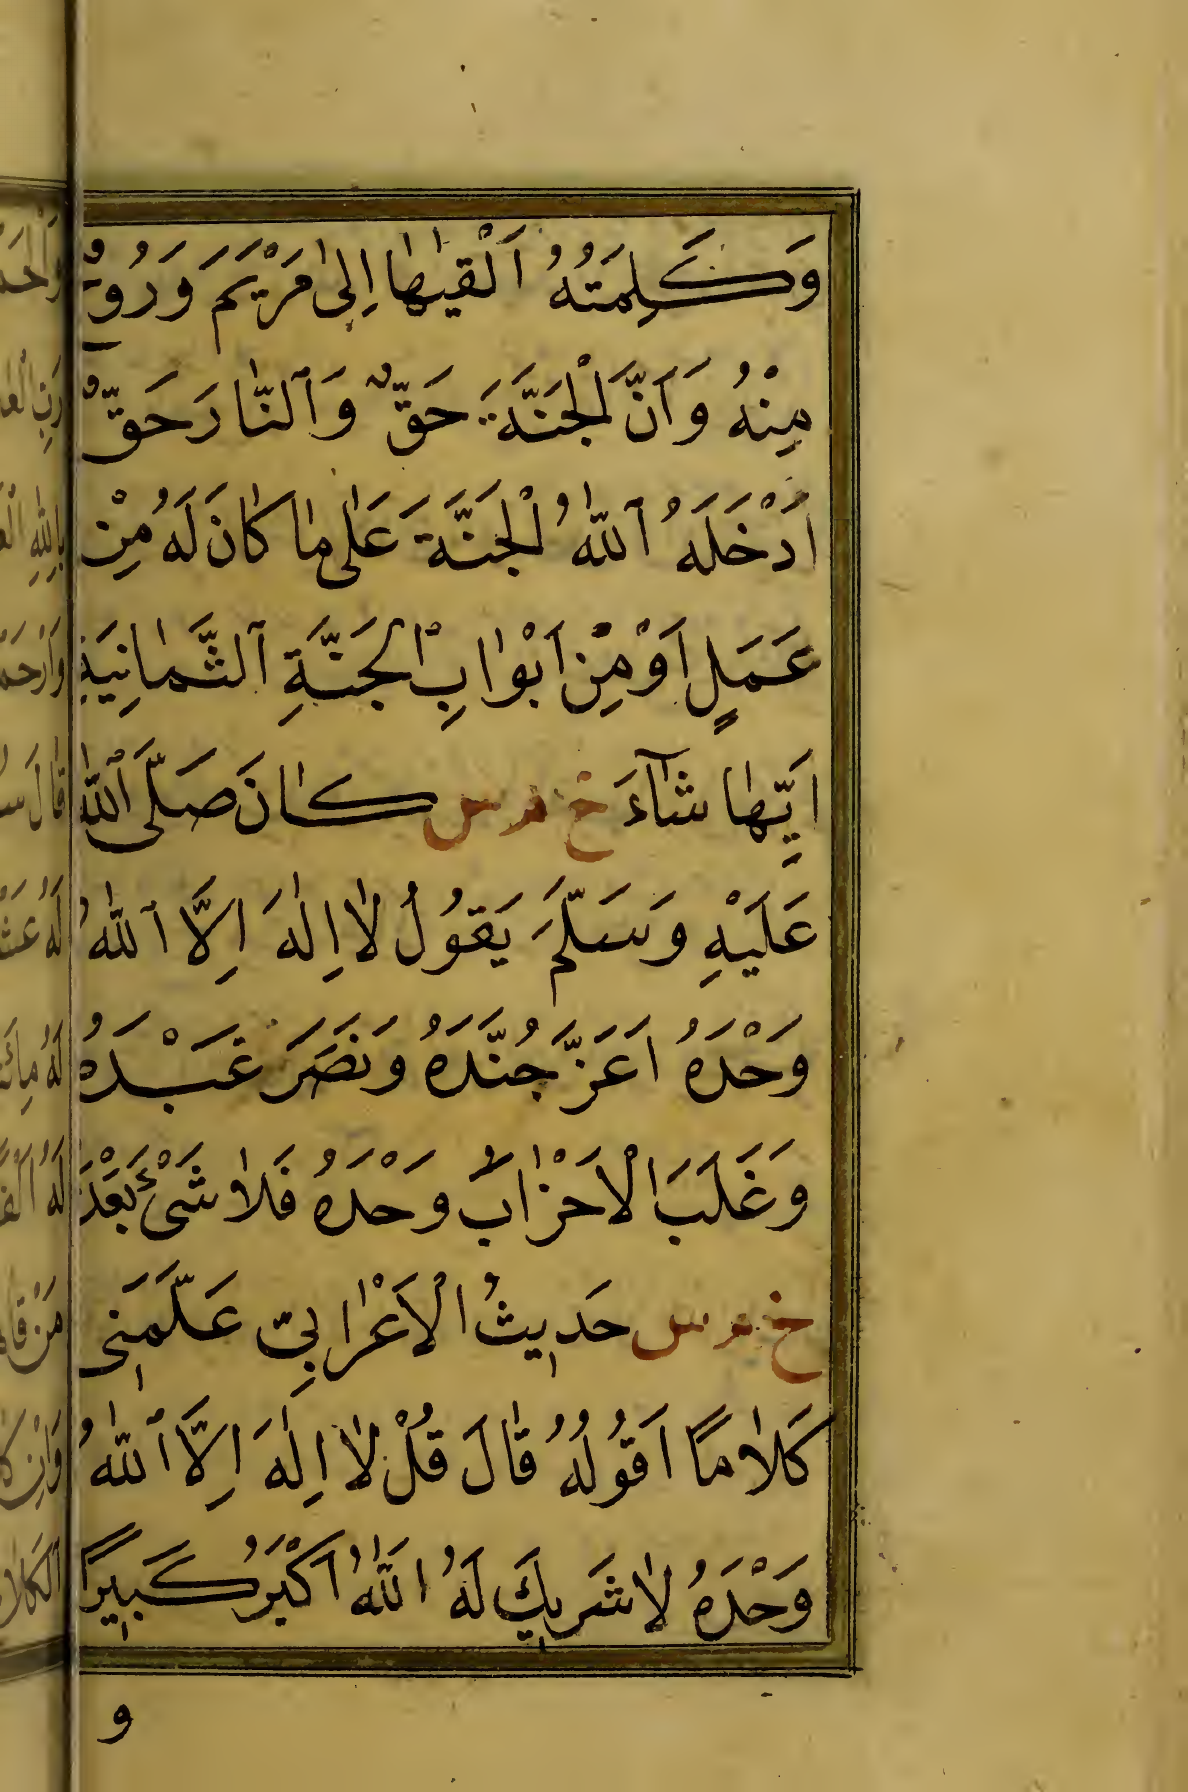 وَكَلِمَتُهُ اَلْقٰيهٰا اِلىٰ مَرْيَمَ وَرُوحٌ
مِنْهُ وَاَنَّ الْجَنَّةَ حَقٌّ وَالنّٰارَ حَقٌّ
اَدْخَلَهُ اللّٰهُ الْجَنَّةَ عَلىٰ مٰا كٰانَ لَهُ مِنْ
عَمَلٍ اَوْ مِنْ اَبْوٰابِ الْجَنَّةِ الثَّمٰانِيَةِ
اَيِّهٰا شٰآءَ خ م س كٰانَ صَلَّى اللّٰهُ
عَلَيْهِ وَسَلَّمَ يَقُولُ لٰا اِلٰهَ اِلَّا اللّٰهُ
وَحْدَهُ اَعَزَّ جُنْدَهُ وَنَصَرَ عَبْدَهُ
وَغَلَبَ الْاَحْزٰابَ وَحْدَهُ فَلٰا شَىْءَ بَعْدَهُ
خ م س حَديثُ الْاَعْرٰابِىِّ عَلَّمَنى
كَلٰامًا اَقُولُهُ قٰالَ قُلْ لٰا اِلٰهَ اِلَّا اللّٰهُ
وَحْدَهُ لٰا شَريكَ لَهُ اللّٰهُ اَكْبَرُ كَبيرًا
و